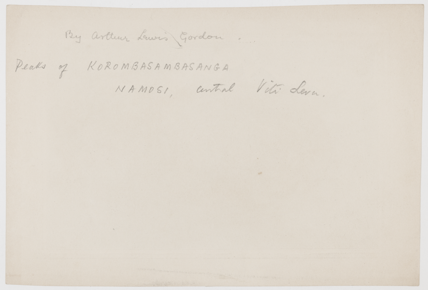 By Arthur Lewis Gordon.
Peaks of KOROMBASAMBASANGA
NAMOSI, central Viti Levu.